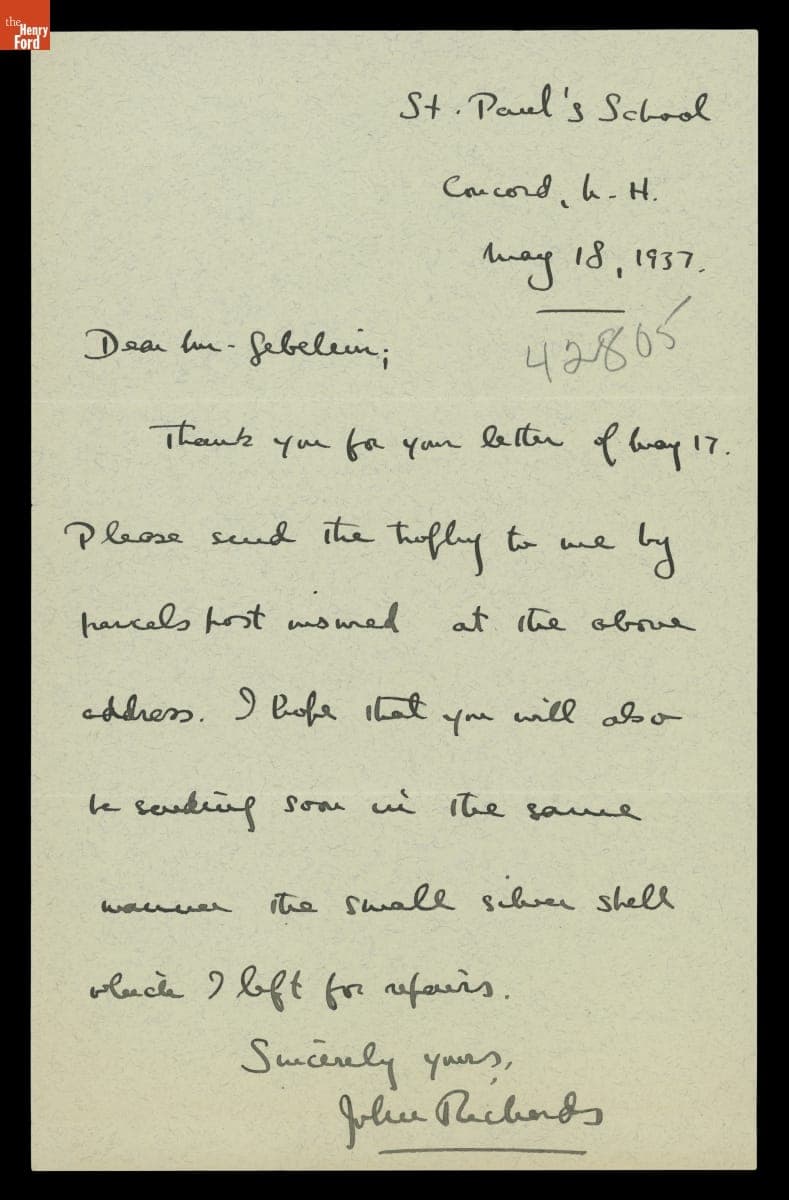 the
Henry
Ford
St. Paul's School
Concord, N. H.
May 18, 1937.
42805
Dear Mr. Gebelein;
Thank you for your letter of May 17.
Please send the trophy to me by
parcels post insured at the above
address. I hope that you will also
be sending soon in the same
manner the small silver shell
which I left for repairs.
Sincerely yours,
John Richards